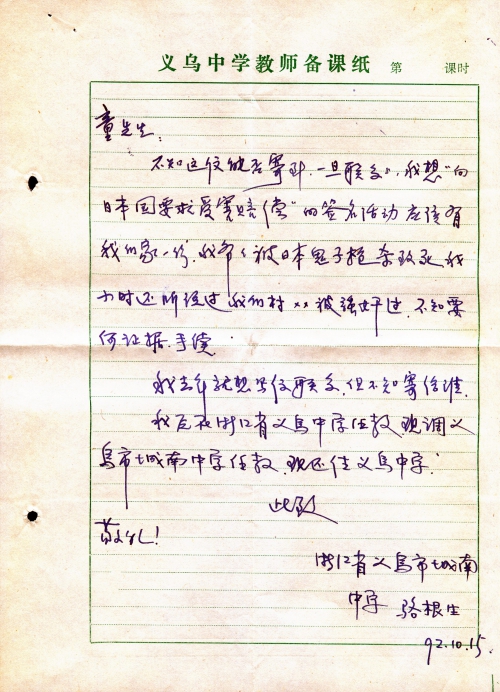 义乌中学教师备课纸 第 课时
童先生:
不知这信能否寄到,一旦联系,我想"向
日本国要求受害赔偿"的签名活动应该有
我们家一份,我爷爷被日本鬼子枪杀致死,我
小时还听说过我们村××被强奸过,不知要
何证据、手续
我去年就想写信联系,但不知寄给谁,
我原在浙江省义乌中学任教,现调义
乌市城南中学任教,现还住义乌中学.
此致
敬礼!
浙江省义乌市城南
中学 骆根生
92.10.15.